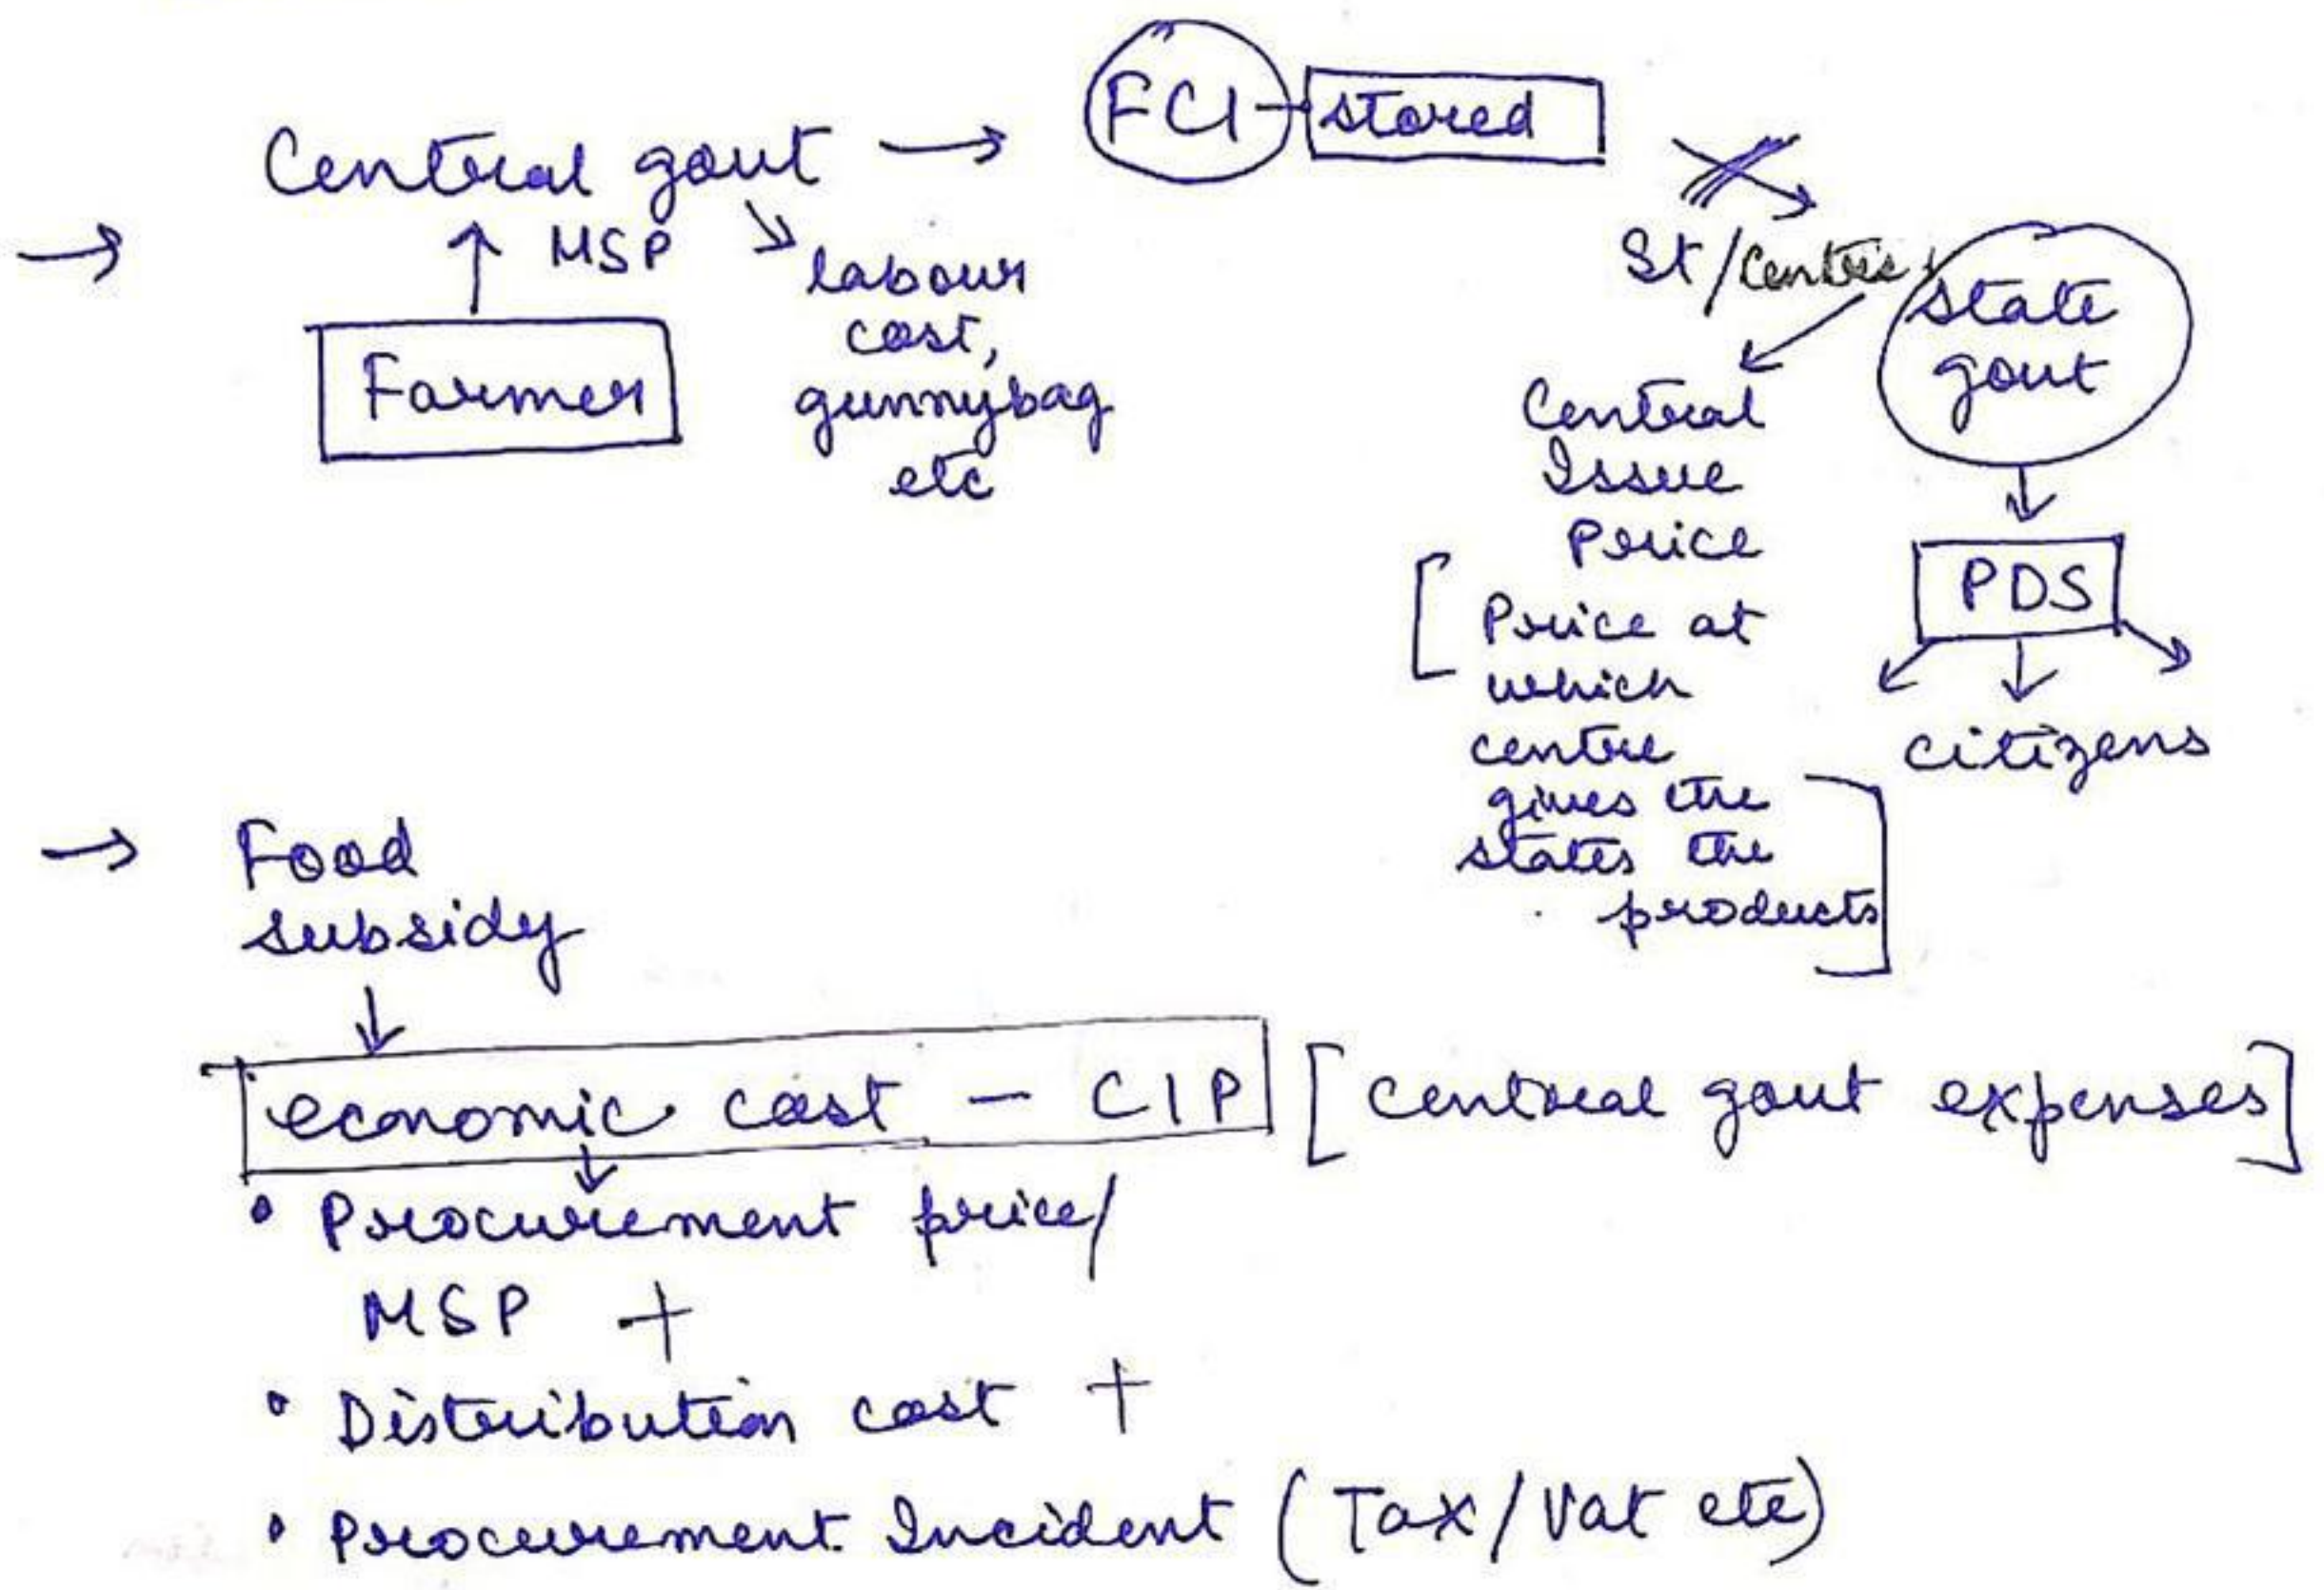 FCI - stored
→ Central govt →
MSP
Farmer
labour
cost,
gunnybag
etc
St/Centre
state
govt
Central
Issue
Price
[Price at
which
centre
gives the
states the
products]
PDS
citizens
→ Food
subsidy
economic cost - CIP [central govt expenses]
• Procurement price/
MSP +
• Distribution cost +
• Procurement Incident (Tax/Vat etc)